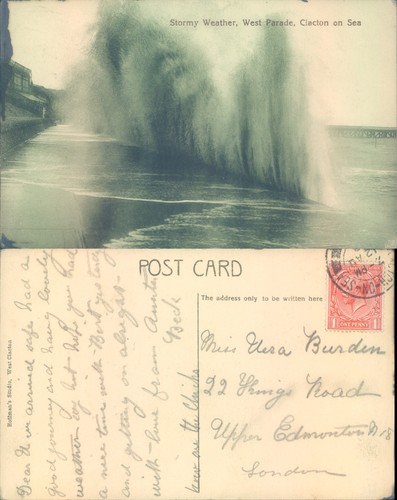 Stormy Weather, West Parade, Clacton on Sea
POST CARD
The address only to be written here
Hoffman's Studio, West Clacton
ONE PENNY
Dear V arrived safe had a
good journey and having lovely
weather very hot hope you had
a nice time with Bert yesterday
and getting on alright
with love from Auntie
Beck
Miss Vera Burden
22 Kings Road
Upper Edmonton N.18
London